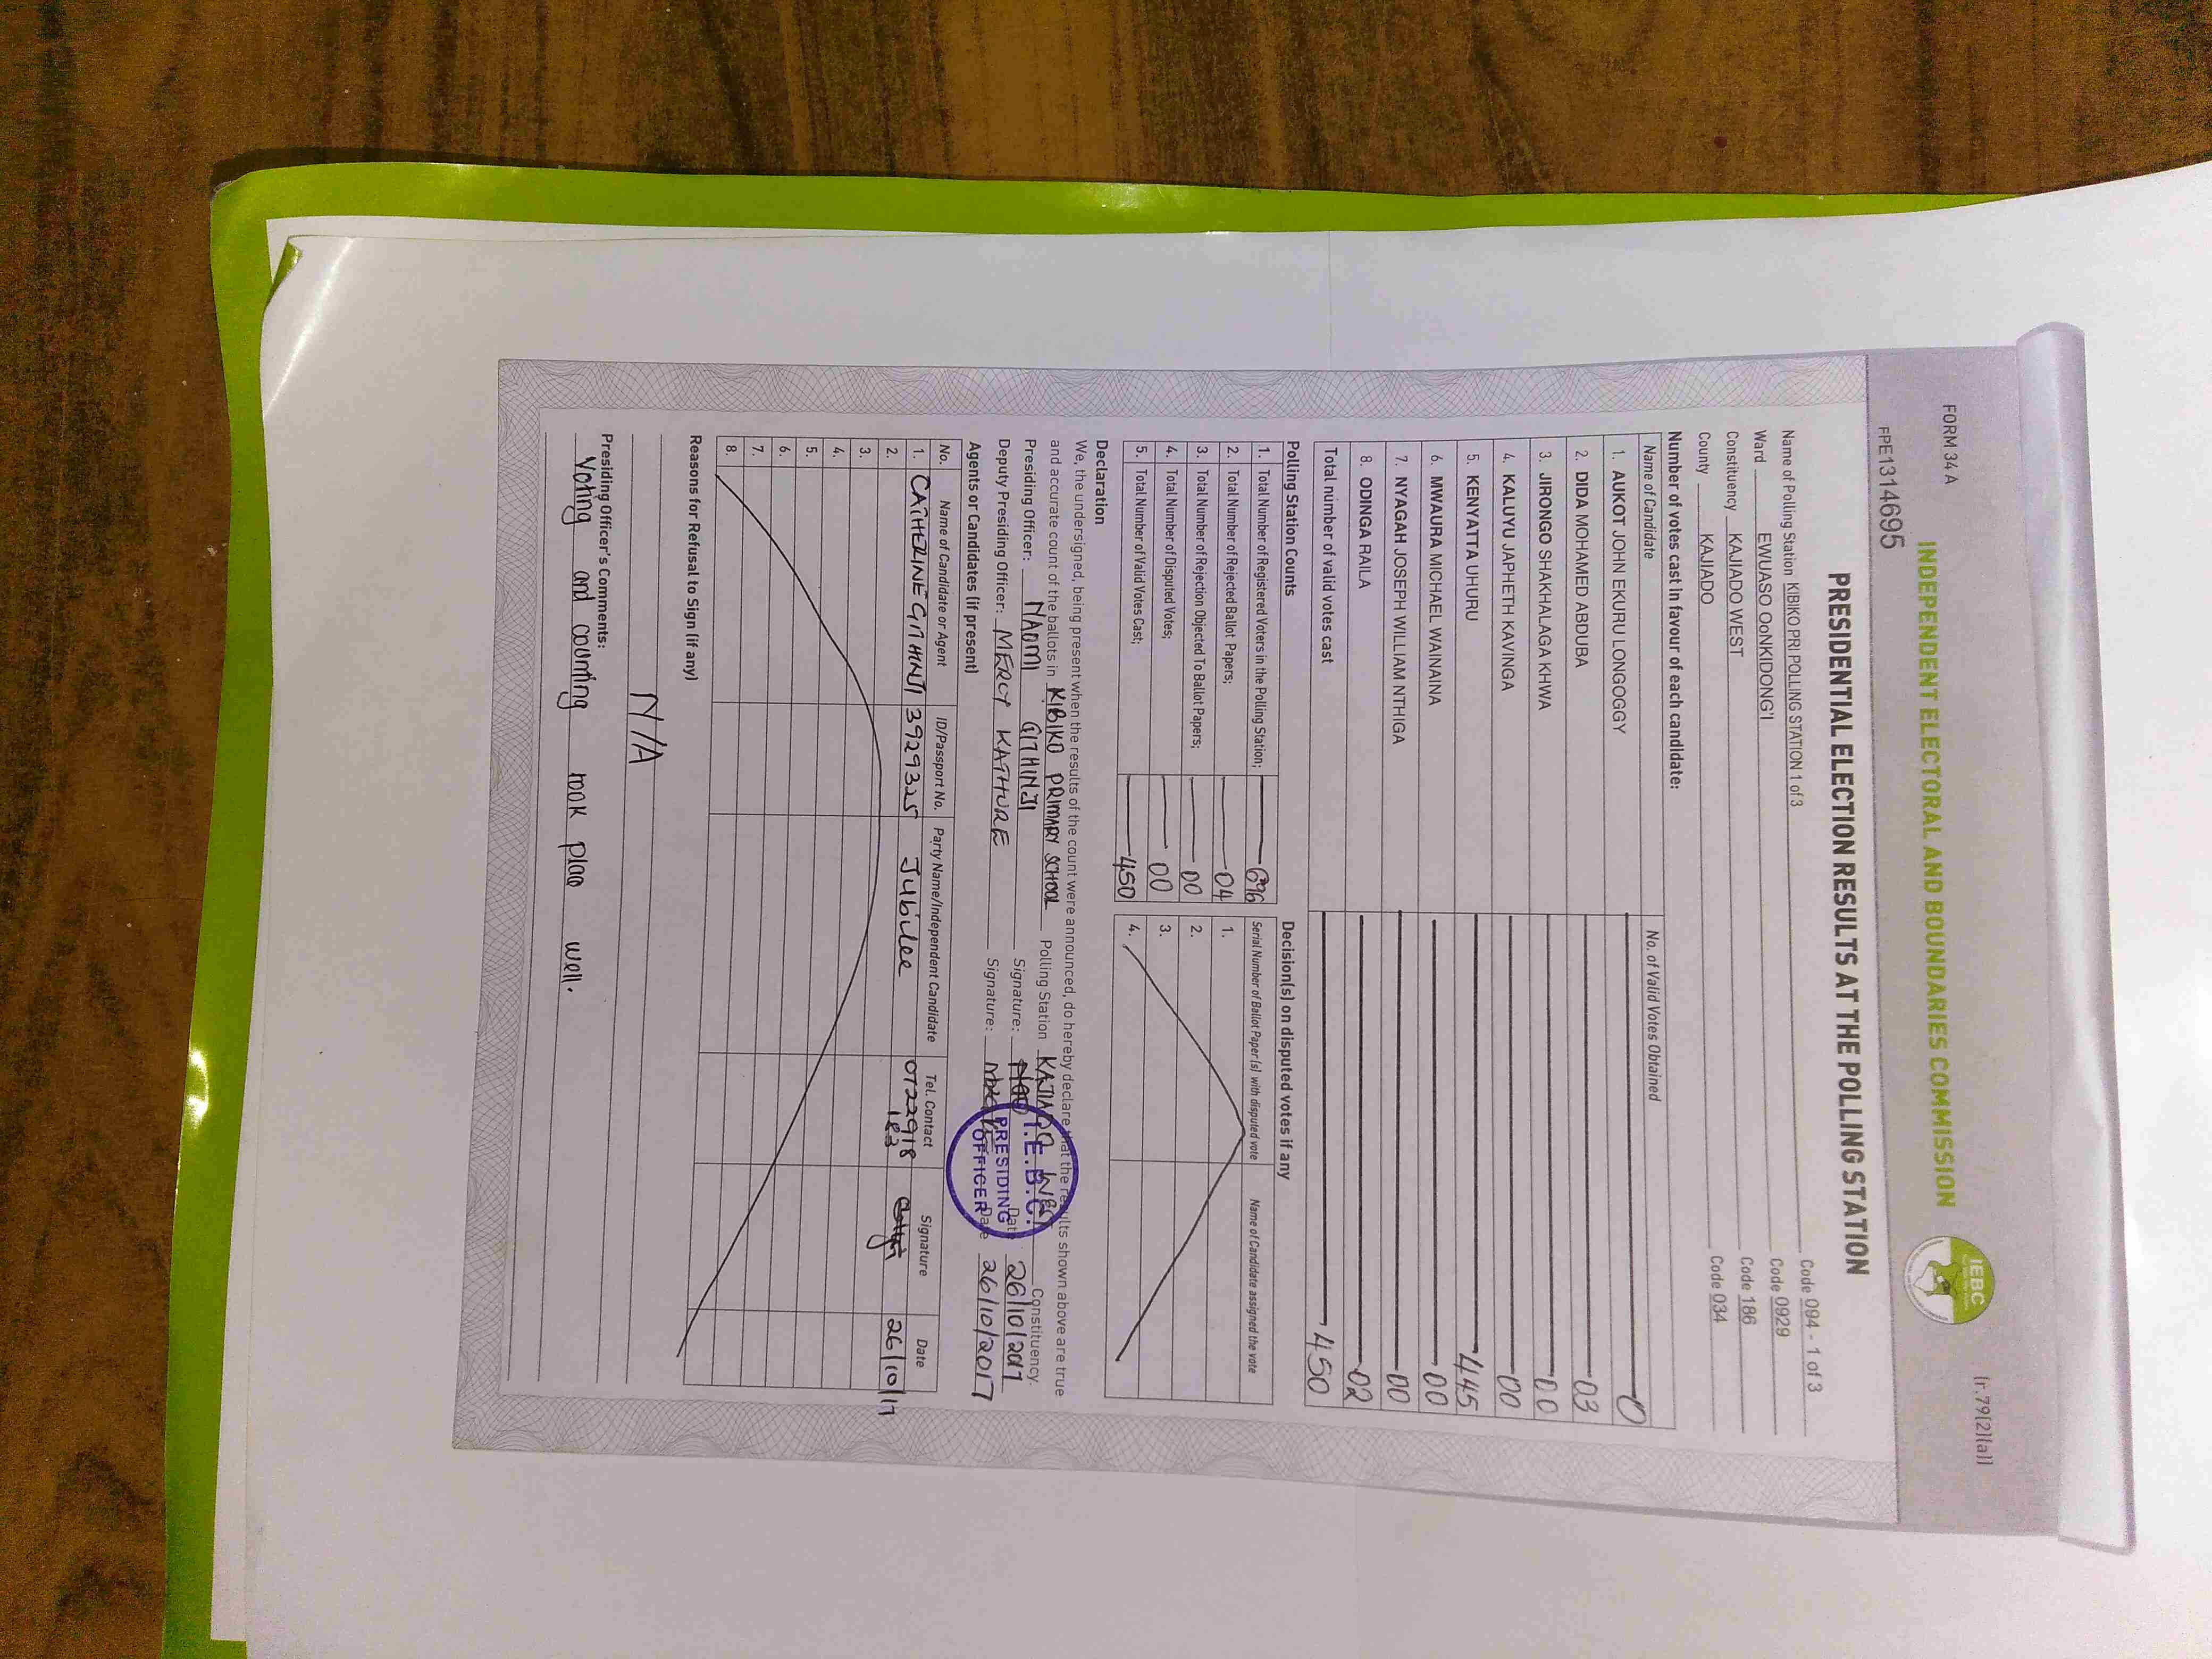 FORM 34 A
(r.79(2)(a))
INDEPENDENT ELECTORAL AND BOUNDARIES COMMISSION
IEBC
FPE1314695
PRESIDENTIAL ELECTION RESULTS AT THE POLLING STATION
Name of Polling Station KIBIKO PRI POLLING STATION 1 of 3 Code 094 - 1 of 3
Ward EWUASO OoNKIDONG'I Code 0929
Constituency KAJIADO WEST Code 186
County KAJIADO Code 034
Number of votes cast in favour of each candidate:
Name of Candidate No. of Valid Votes Obtained
1. AUKOT JOHN EKURU LONGOGGY 0
2. DIDA MOHAMED ABDUBA 03
3. JIRONGO SHAKHALAGA KHWA 00
4. KALUYU JAPHETH KAVINGA 00
5. KENYATTA UHURU 445
6. MWAURA MICHAEL WAINAINA 00
7. NYAGAH JOSEPH WILLIAM NTHIGA 00
8. ODINGA RAILA 02
Total number of valid votes cast 450
Polling Station Counts
1. Total Number of Registered Voters in the Polling Station; 696
2. Total Number of Rejected Ballot Papers; 04
3. Total Number of Rejection Objected To Ballot Papers; 00
4. Total Number of Disputed Votes; 00
5. Total Number of Valid Votes Cast; 450
Decision(s) on disputed votes if any
Serial Number of Ballot Paper(s) with disputed vote Name of Candidate assigned the vote
1.
2.
3.
4.
Declaration
We, the undersigned, being present when the results of the count were announced, do hereby declare that the results shown above are true
and accurate count of the ballots in KIBIKO PRIMARY SCHOOL Polling Station KAJIADO WEST Constituency.
Presiding Officer: NAOMI GITHINJI Signature: Date 26/10/2017
Deputy Presiding Officer: MERCY KATHURE Signature: Date 26/10/2017
I.E.B.C.
PRESIDING
OFFICER
Agents or Candidates (if present)
No. Name of Candidate or Agent ID/Passport No. Party Name/Independent Candidate Tel. Contact Signature Date
1. CATHERINE GITHINJI 3929325 Jubilee 0722918 26/10/17
2.
3.
4.
5.
6.
7.
8.
Reasons for Refusal to Sign (if any)
N/A
Presiding Officer's Comments:
Voting and counting took place well.